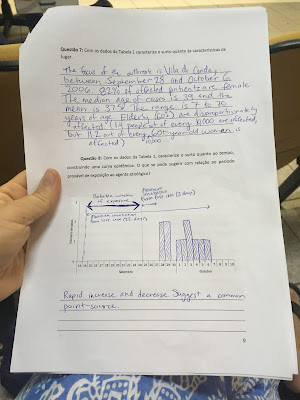 Questão 7: Com os dados da Tabela 1 caracterize o surto quanto às características de
lugar.
The focus of the outbreak is Vila do Conde,
between September 28 and October 6,
2006. 82% of affected patients are female.
The median age of cases is 39 and the
mean is 37.5. The range is 7 to 70
years of age. Elderly (60+) are disproportionately
affected (1.4 people out of every 10,000 are affected,
but 11.2 out of every 60+ year old women is
affected)
Questão 8: Com os dados da Tabela 1, caracterize o surto quanto ao tempo,
construindo uma curva epidêmica. O que se pode sugerir com relação ao período
provável de exposição ao agente etiológico?
of exposure
Minimum
incubation
from first case (3 days)
Maximum incubation
from last case (22 days)
Setembro
Outubro
Rapid increase and decrease suggest a common
point-source.
9